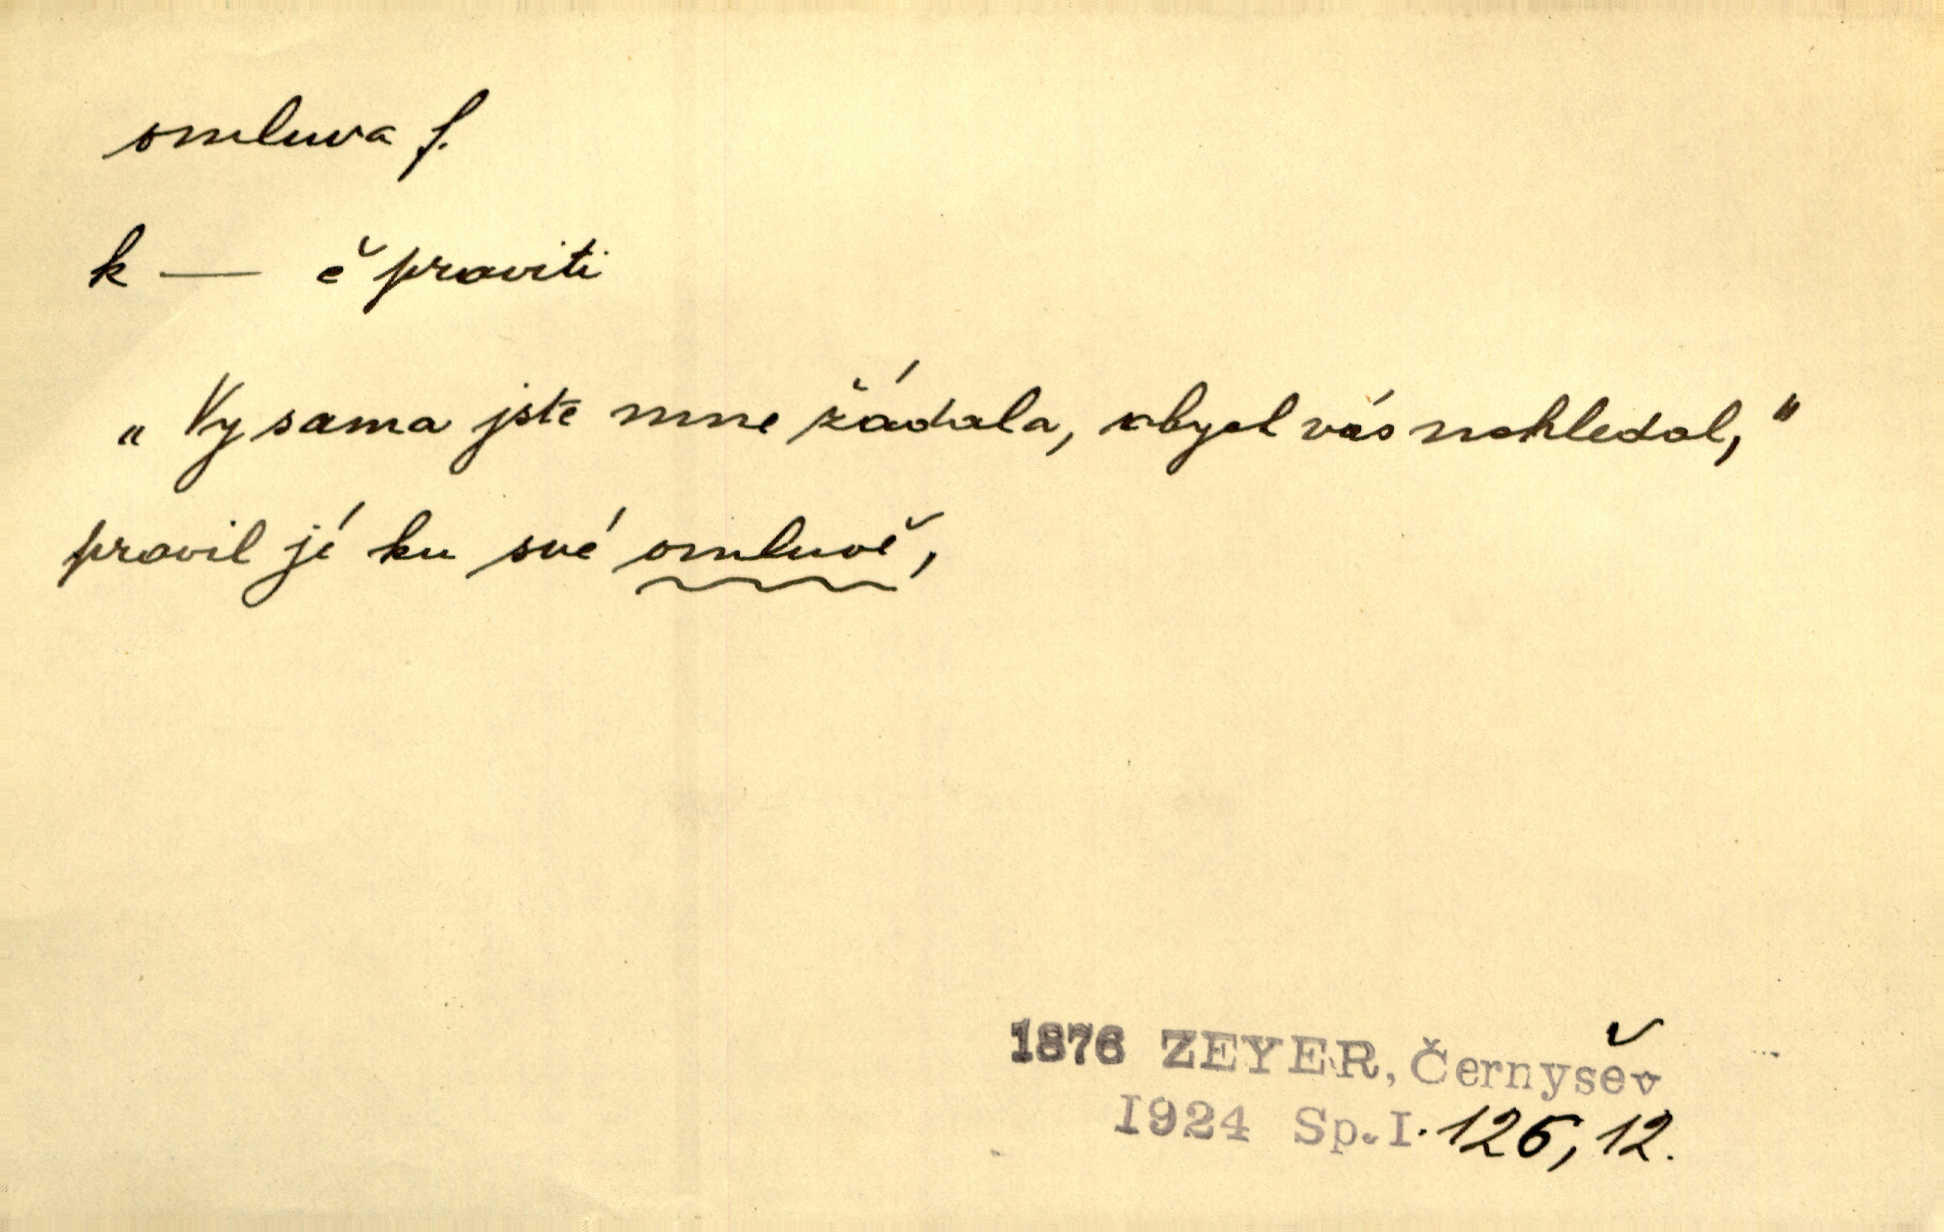 omluva f.
k — ě praviti
„Vy sama jste mne žádala, abych vás nehledal,"
pravil jí ku své omluvě,
1876 ZEYER, Černyšev
1924 Sp.I. 126, 12.